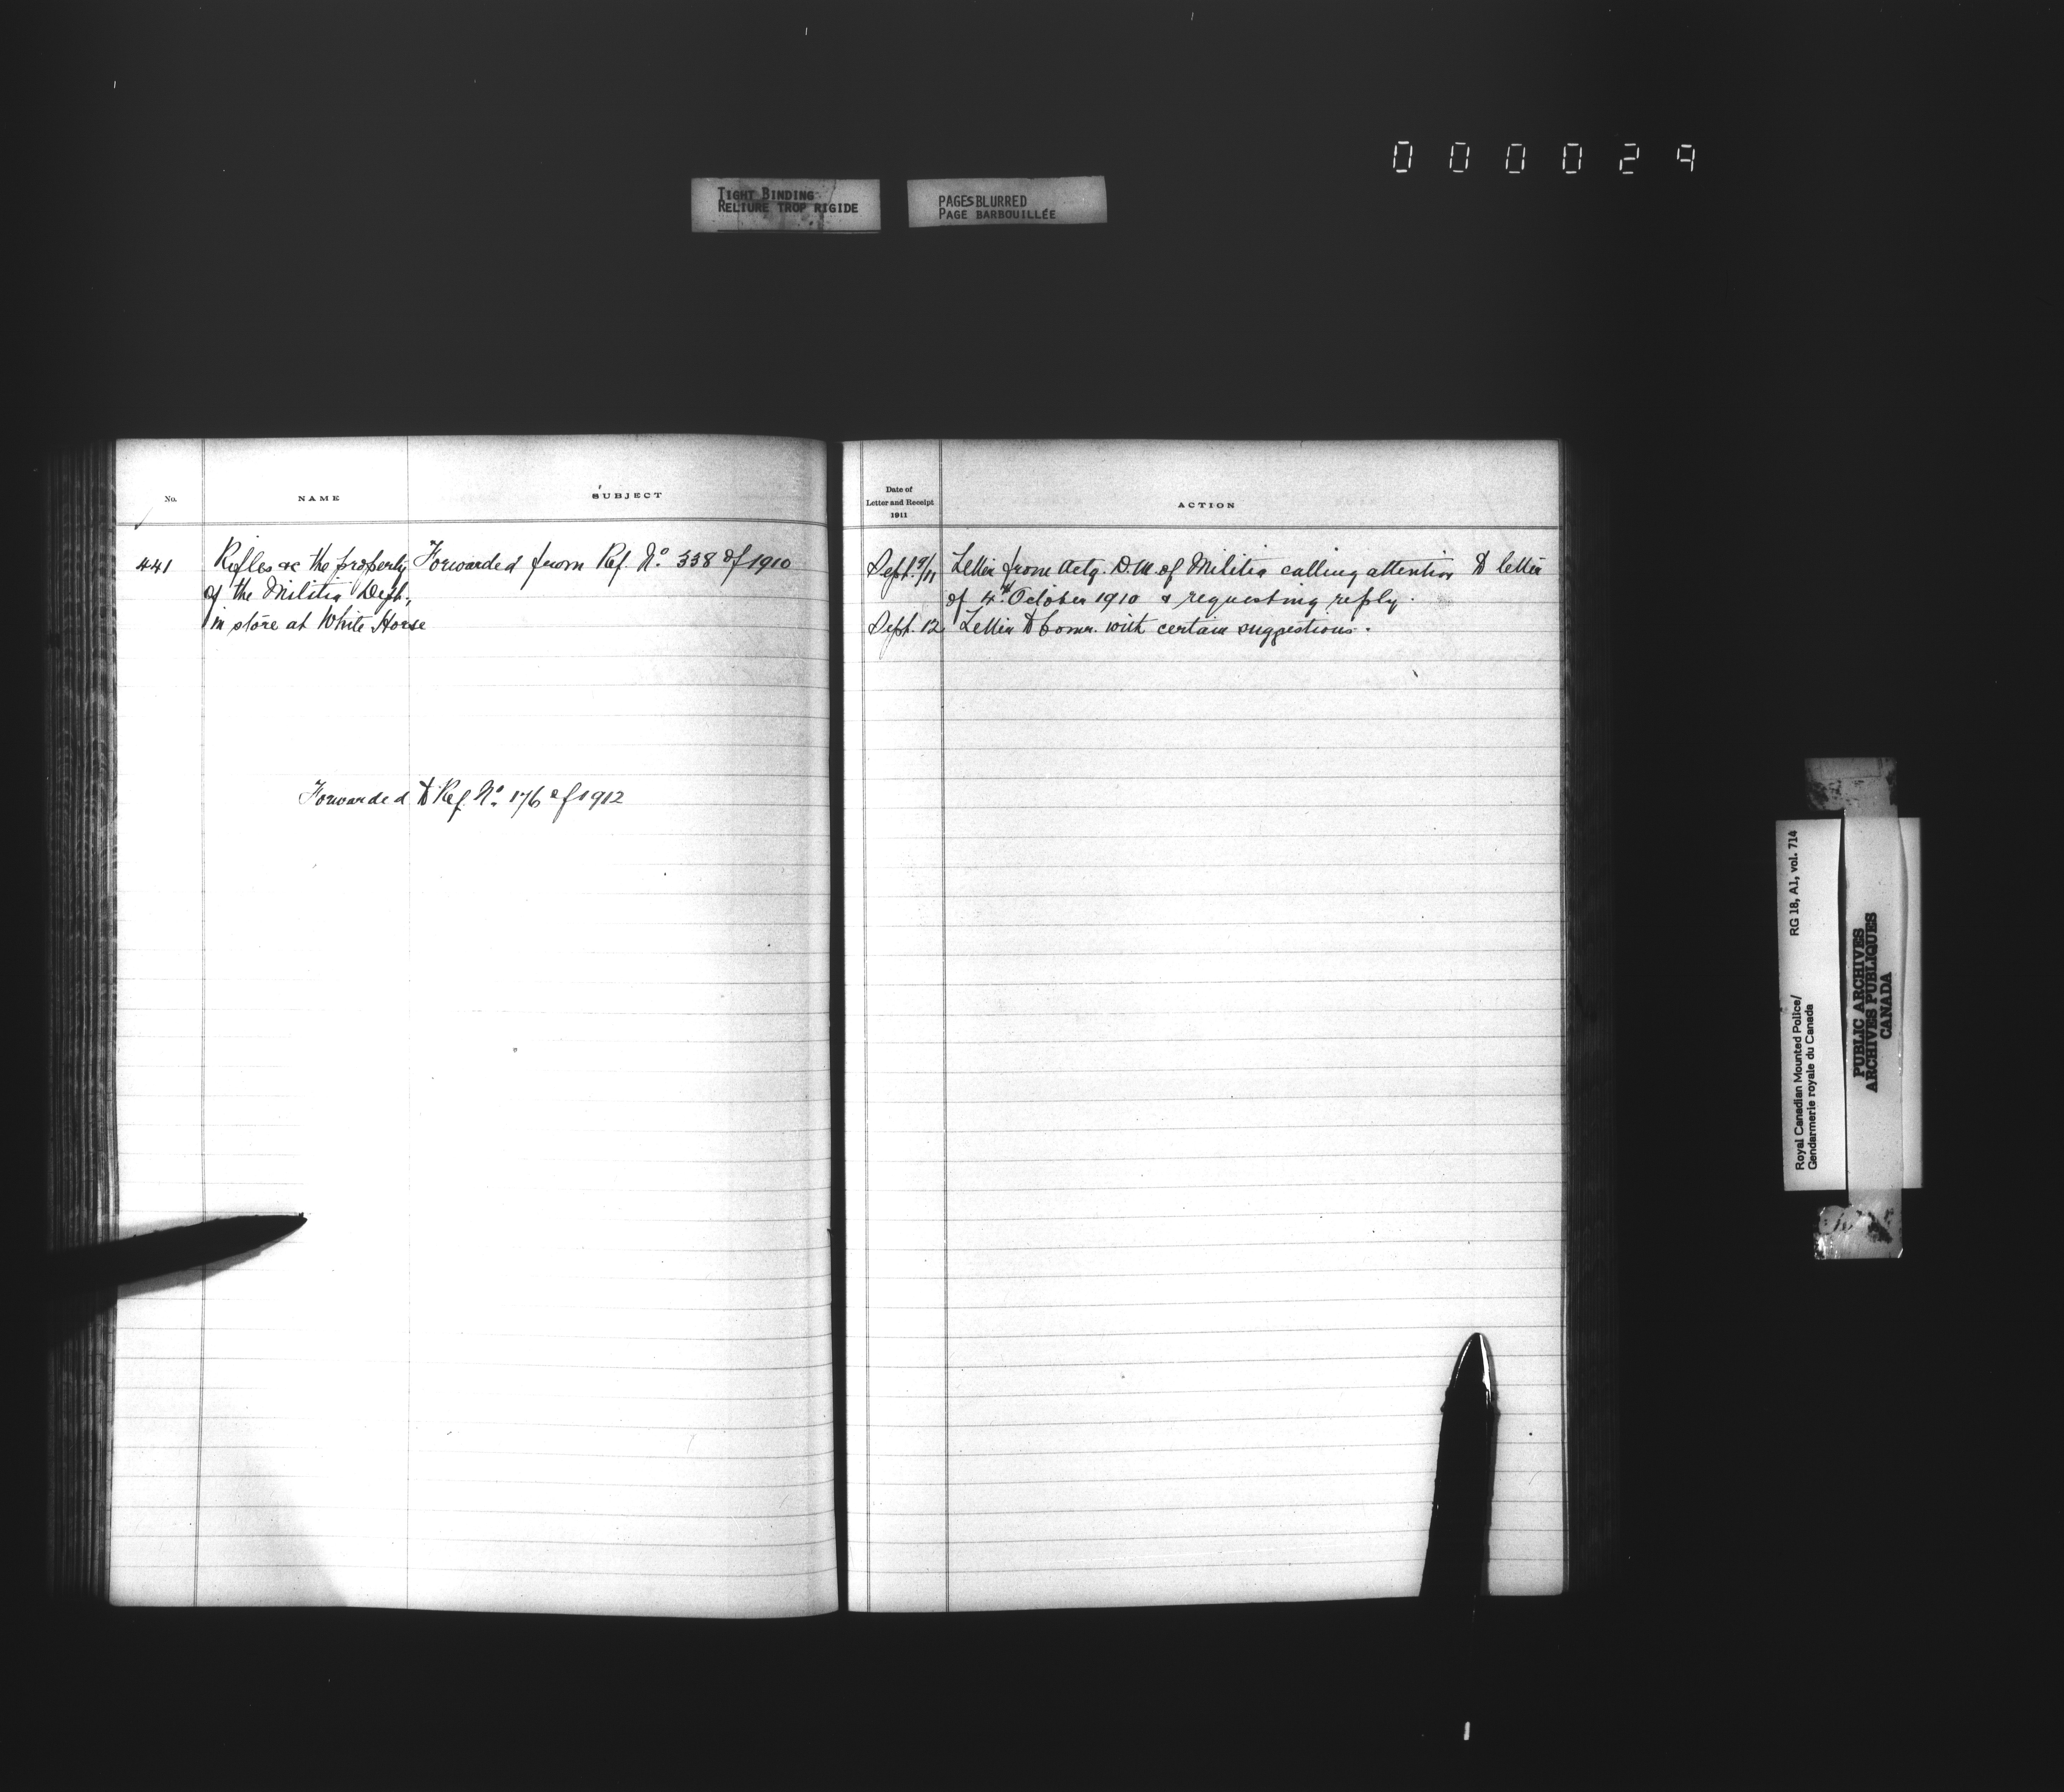 000029
TIGHT BINDING
RELIURE TROP RIGIDE
PAGES BLURRED
PAGE BARBOUILLÉE
No.
NAME
SUBJECT
441
Rifles &c the property
of the Militia Dept.,
in store at White Horse
Forwarded from Ref. No. 338 of 1910
Forwarded to Ref. No. 176 of 1912
Date of
Letter and Receipt
1911
ACTION
Sept. 9/11 Letter from Actg. D.M. of Militia calling attention to letter
of 4th October 1910 & requesting reply.
Sept. 12 Letter to Comr. with certain suggestions.
RG 18, A1, vol. 714
Royal Canadian Mounted Police/
Gendarmerie royale du Canada
PUBLIC ARCHIVES
ARCHIVES PUBLIQUES
CANADA